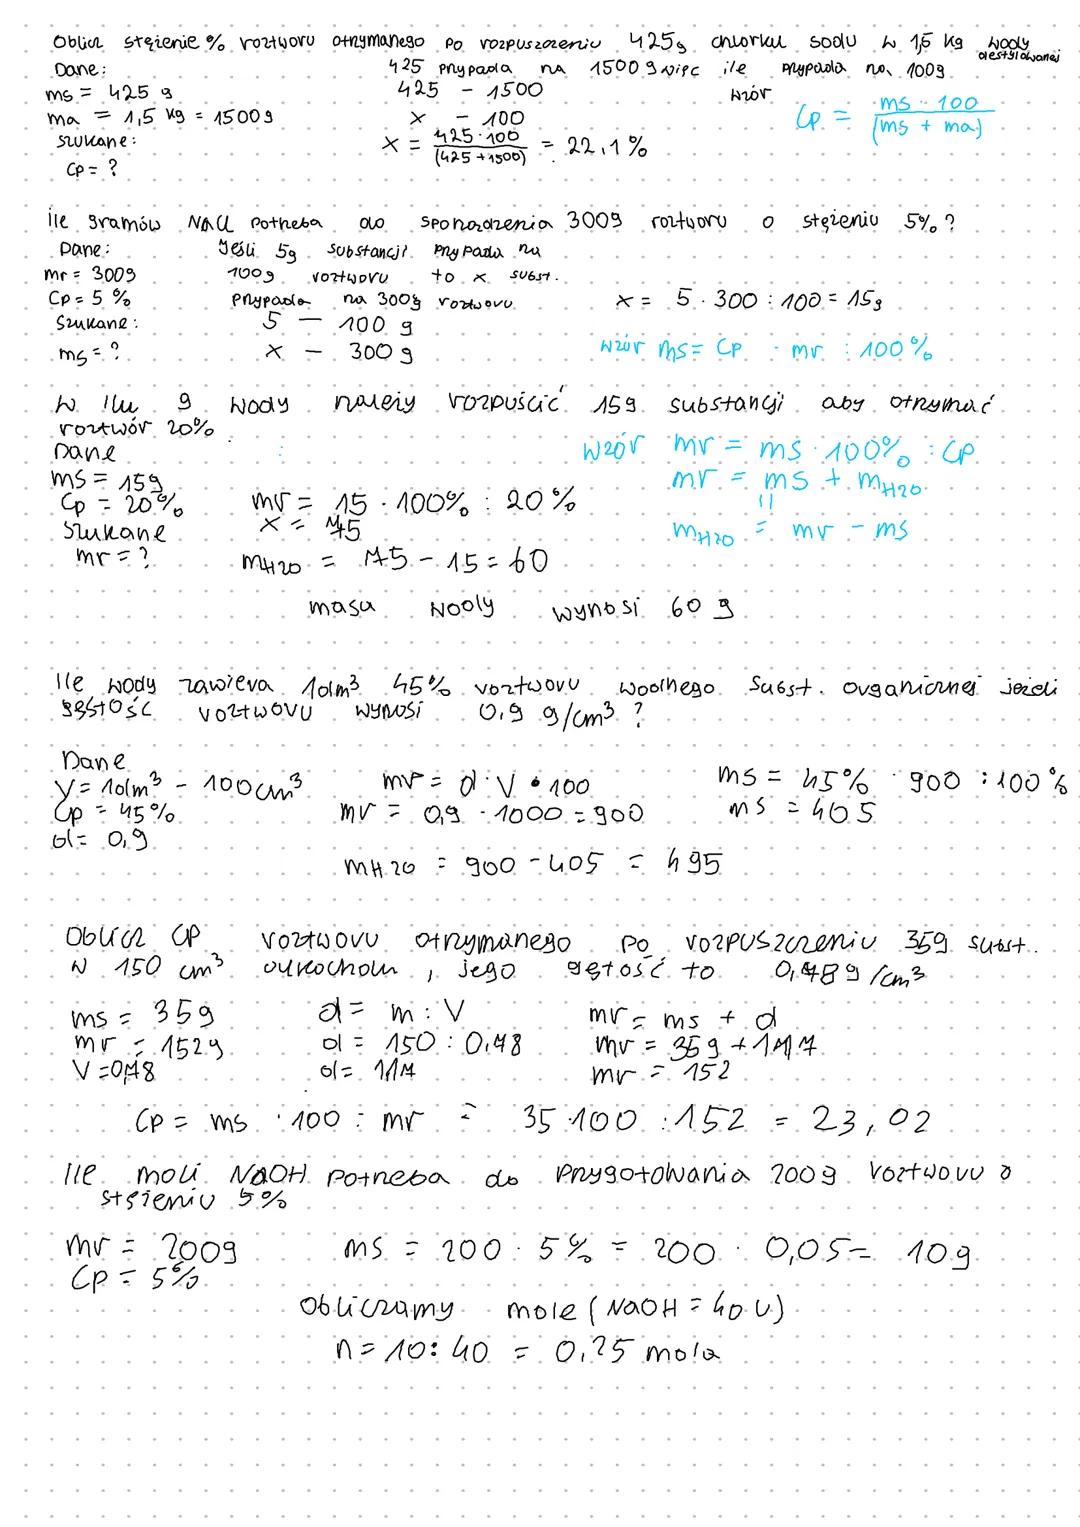 Oblicz stężenie % roztworu otrzymanego po rozpuszczeniu 425g chlorku sodu w 1,5 kg wody destylowanej
Dane:
ms = 425 g
ma = 1,5 kg = 1500g
szukane:
Cp = ?
425 przypada na 1500g więc ile przypada na 100g
425 - 1500
x - 100
x = 425·100 / (425+1500) = 22,1%
wzór
Cp = ms · 100 / (ms + ma)
ile gramów NaCl potrzeba do sporządzenia 300g roztworu o stężeniu 5%?
Dane:
mr = 300g
Cp = 5%
Szukane:
ms = ?
Jeśli 5g substancji przypada na
100g roztworu to x subst.
przypada na 300g roztworu
5 — 100 g
x — 300 g
x = 5 · 300 : 100 = 15g
wzór ms = Cp · mr : 100%
W ilu g wody należy rozpuścić 15g substancji aby otrzymać
roztwór 20%
Dane
ms = 15g
Cp = 20%
Szukane
mr = ?
mr = 15 · 100% : 20%
x = 75
mH2O = 75 - 15 = 60
wzór mr = ms · 100% : Cp
mr = ms + mH2O
mH2O = mr - ms
masa wody wynosi 60 g
Ile wody zawiera 1dm³ 45% roztworu wodnego subst. organicznej jeżeli
gęstość roztworu wynosi 0,9 g/cm³ ?
Dane
V = 1dm³ - 100cm³
Cp = 45%
d = 0,9
mr = d · V • 100
mr = 0,9 · 1000 = 900
ms = 45% · 900 : 100%
ms = 405
mH2O = 900 - 405 = 495
Oblicz CP roztworu otrzymanego po rozpuszczeniu 35g subst.
w 150 cm³ , jego gętość to 0,789/cm³
ms = 35g
mr = 152g
V = 0,78
d = m : V
d = 150 : 0,78
d = 117
mr = ms + d
mr = 35g + 117
mr = 152
Cp = ms · 100 : mr = 35·100 : 152 = 23,02
Ile moli NaOH potrzeba do przygotowania 200g roztworu o
stężeniu 5%
mr = 200g
Cp = 5%
ms = 200 · 5% = 200 · 0,05 = 10g
Obliczamy mole (NaOH = 40 u)
n = 10 : 40 = 0,25 mola